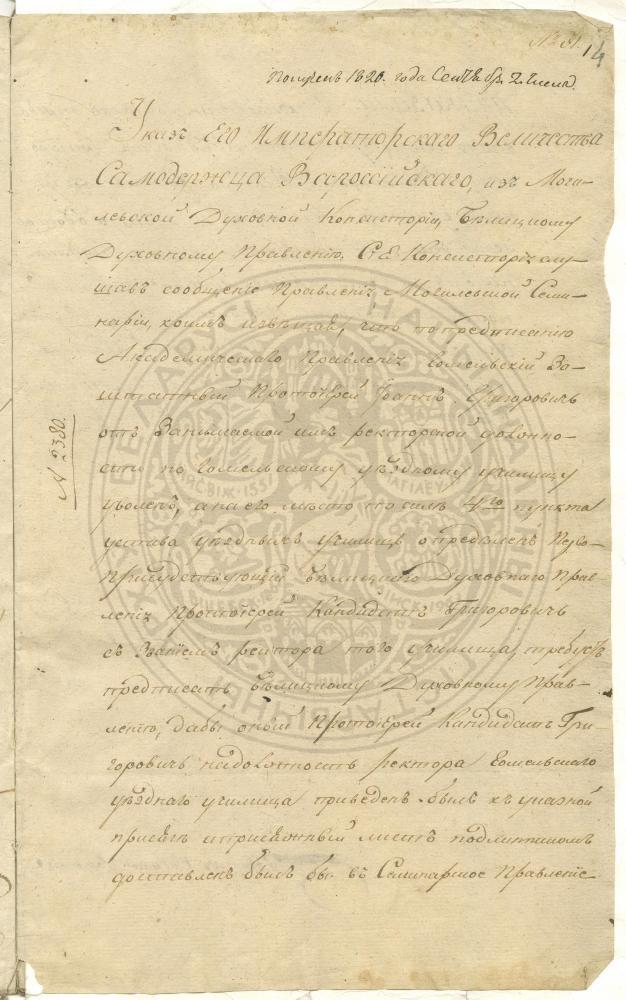 № 51. 14
Получен 1820. года Сентября 2. числа
Указъ Его Императорскаго Величества
Самодержца Всероссійскаго, изъ Моги-
левской Духовной Консисторіи, Бѣлицкому
Духовному Правленію. Сія Консисторія слу-
шавъ сообщеніе Правленія Могилевской Семи-
наріи, коимъ извѣщая, что по предписанію
Академическаго Правленія Гомельскій За-
штатный Протоіерей Іоаннъ Григоровичъ
отъ Занимаемой имъ ректорской должно-
сти по Гомельскому уѣздному училищу
уволенъ, а на его мѣсто по силѣ 4го пункта
устава уѣздныхъ училищъ опредѣленъ Перво-
Присудствующій Бѣлицкаго Духовнаго Прав-
ленія Протоіерей Кандидатъ Григоровичъ
съ Званіемъ ректора того училища, требуетъ
предписать Бѣлицкому Духовному Прав-
ленію, дабы оный Протоіерей Кандидатъ Гри-
горовичъ на должность ректора Гомельскаго
уѣзднаго училища приведенъ былъ къ указной
присягѣ и присяжный листъ подлинникомъ
доставленъ былъ бы въ Семинарское Правленіе
№ 2380.